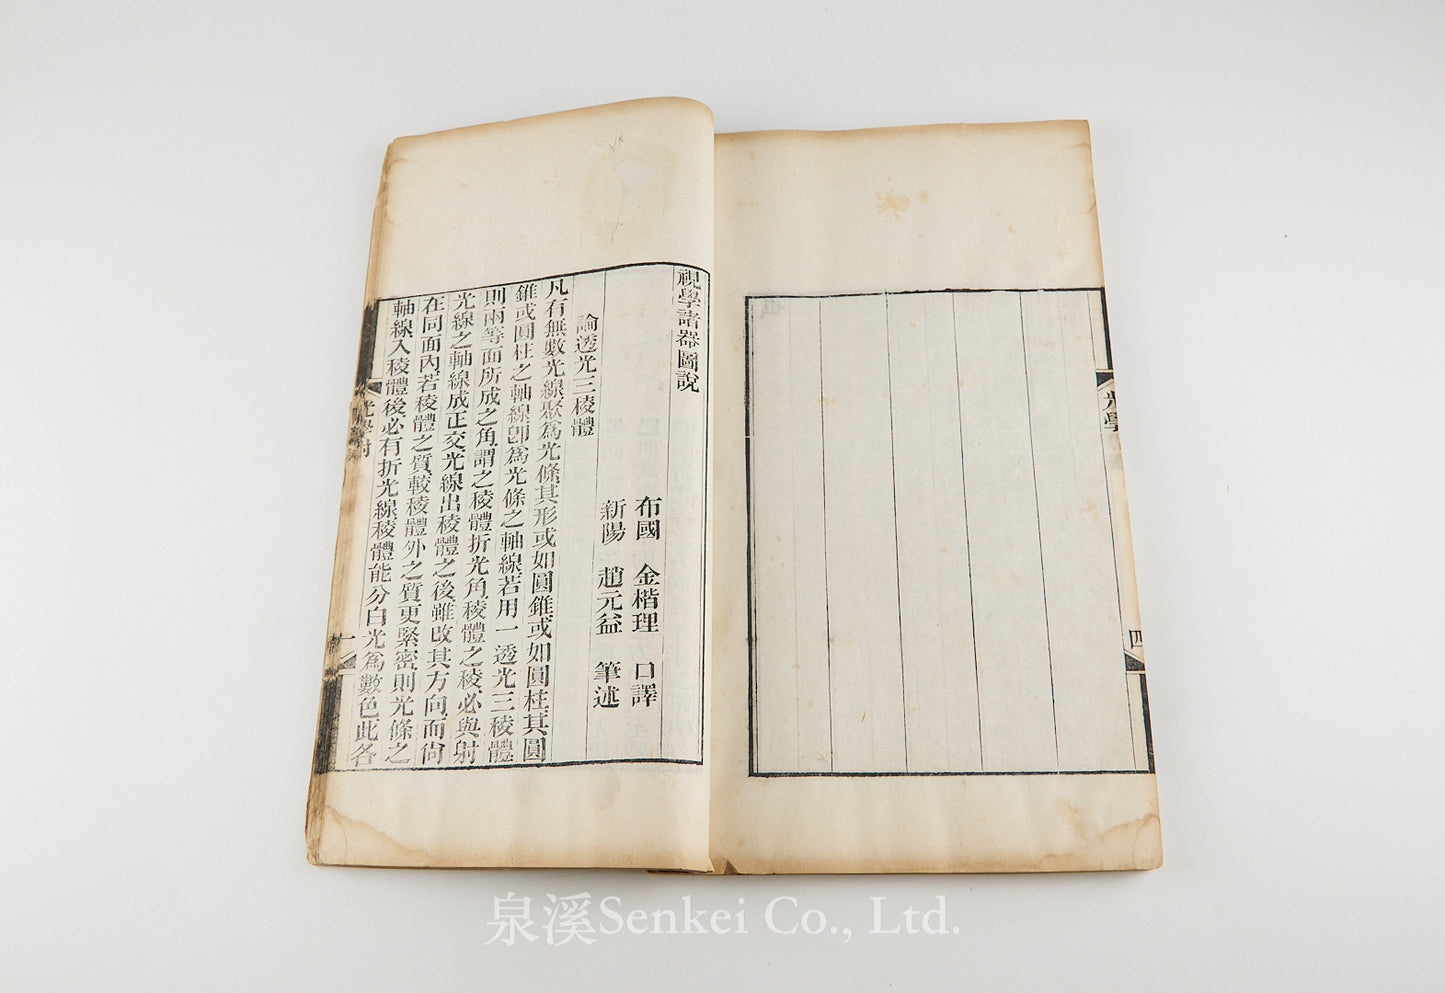 光學
四
視學諸器圖說
布國 金楷理 口譯
新陽 趙元益 筆述
論透光三稜體
凡有無數光線聚爲光條其形或如圓錐或如圓柱其圓
錐或圓柱之軸線卽爲光條之軸線若用一透光三稜體
則兩等面所成之角謂之稜體折光角稜體之稜必與射
光線之軸線成正交光線出稜體之後雖改其方向而尙
在同面內若稜體之質較稜體外之質更緊密則光條之
軸線入稜體後必有折光線稜體能分白光爲數色此各
光學附
一
泉溪Senkei Co., Ltd.